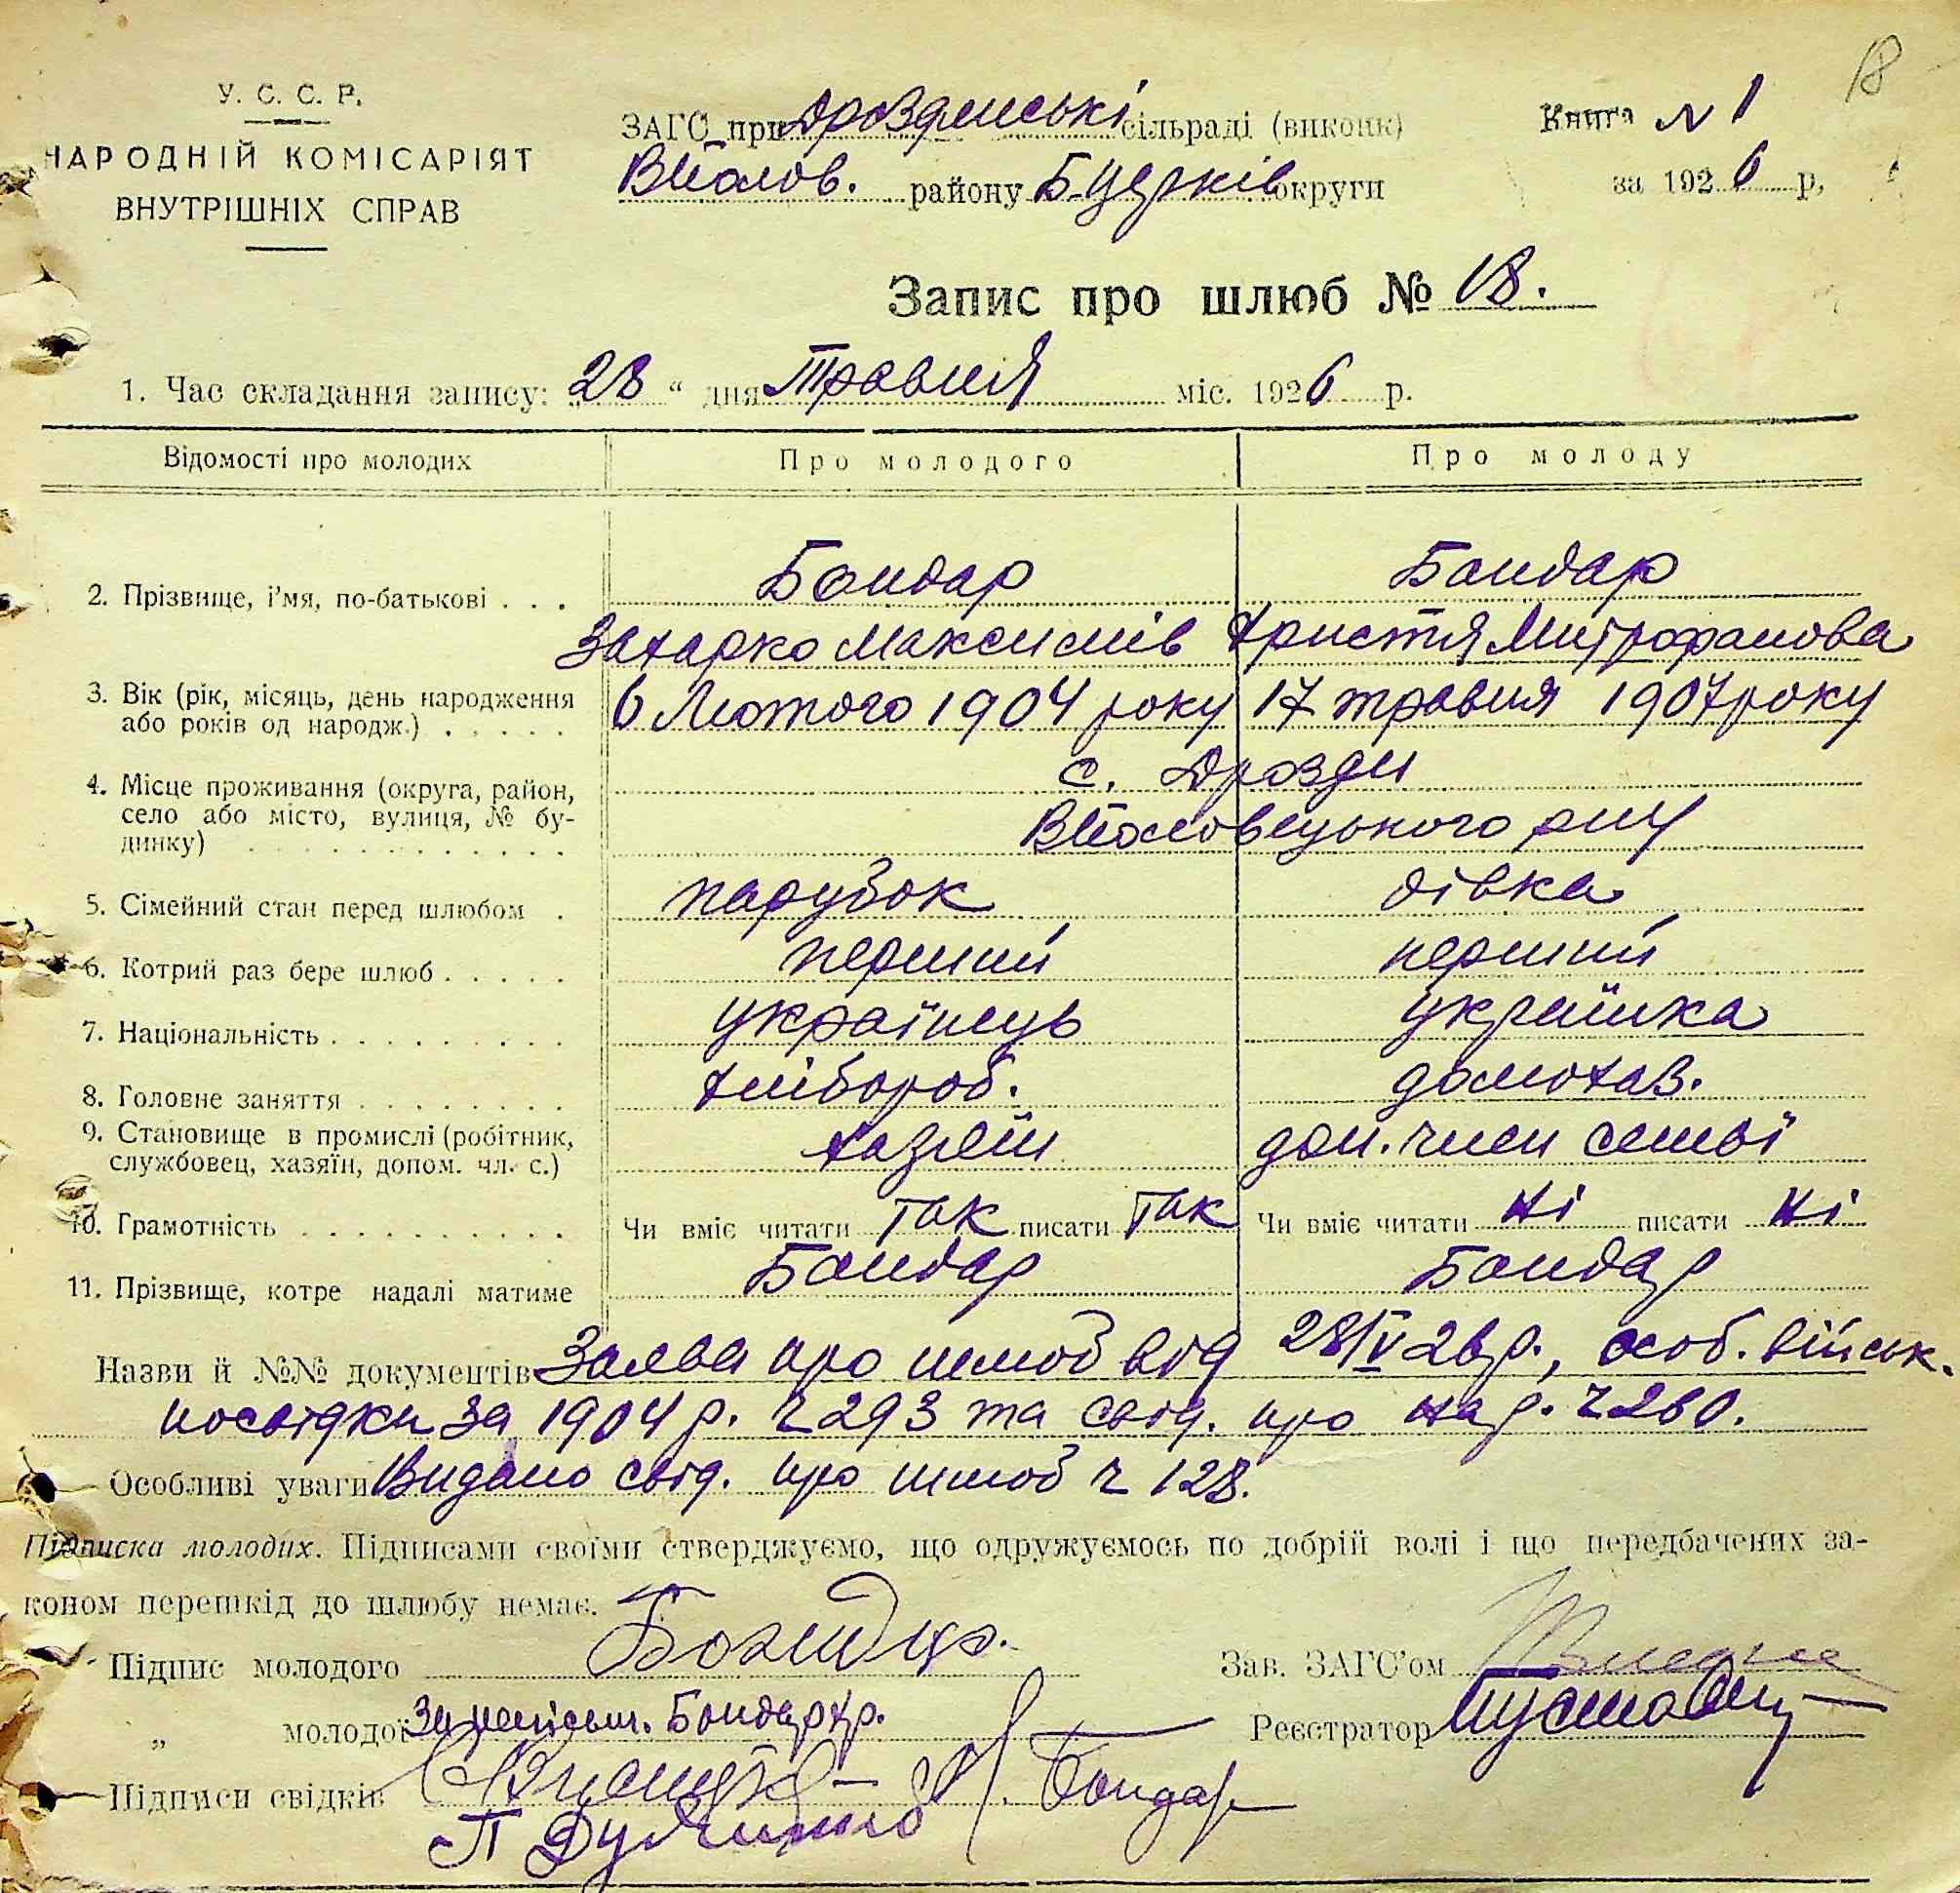 18
У. С. С. Р.
НАРОДНІЙ КОМІСАРІЯТ
ВНУТРІШНІХ СПРАВ
ЗАГС при Дроздинські сільраді (виконк)
Книга № 1
району Б-Церків округи
за 1926 р,
Запис про шлюб № 18.
1. Час складання запису: „28“ дня Травня міс. 1926 р.
Відомості про молодих Про молодого Про молоду
2. Прізвище, і’мя, по-батькові . . . Бондар Бондар
Захарко Максимів Христя Митрофанова
3. Вік (рік, місяць, день народження 6 Лютого 1904 року 17 травня 1907 року
або років од народж.) . . . . .
4. Місце проживання (округа, район, с. Дрозди
село або місто, вулиця, № бу-
динку) . . . . . . . . . . . .
5. Сімейний стан перед шлюбом . парубок дівка
6. Котрий раз бере шлюб . . . . . перший перший
7. Національність . . . . . . . . . українець українка
8. Головне заняття . . . . . . . . хлібороб. домохаз.
9. Становище в промислі (робітник, хазяїн доп. член семьї
службовец, хазяїн, допом. чл. с.)
10. Грамотність . . . . . . . . . . Чи вміє читати так писати так Чи вміє читати ні писати ні
11. Прізвище, котре надалі матиме Бондар Бондар
Назви й №№ документів Заява про шлюб від 28/IV 26 р., особ. військ.
посвідки за 1904 р. ч 293 та свід. про нар. ч 260.
Особливі уваги Видано свід. про шлюб ч 128.
Підписка молодих. Підписами своїми стверджуємо, що одружуємось по добрій волі і що передбачених за-
коном перешкід до шлюбу немає.
Підпис молодого Бондар.
Зав. ЗАГС’ом
„ молодої За неписьм. Бондар
Реєстратор
Підписи свідків Бондар